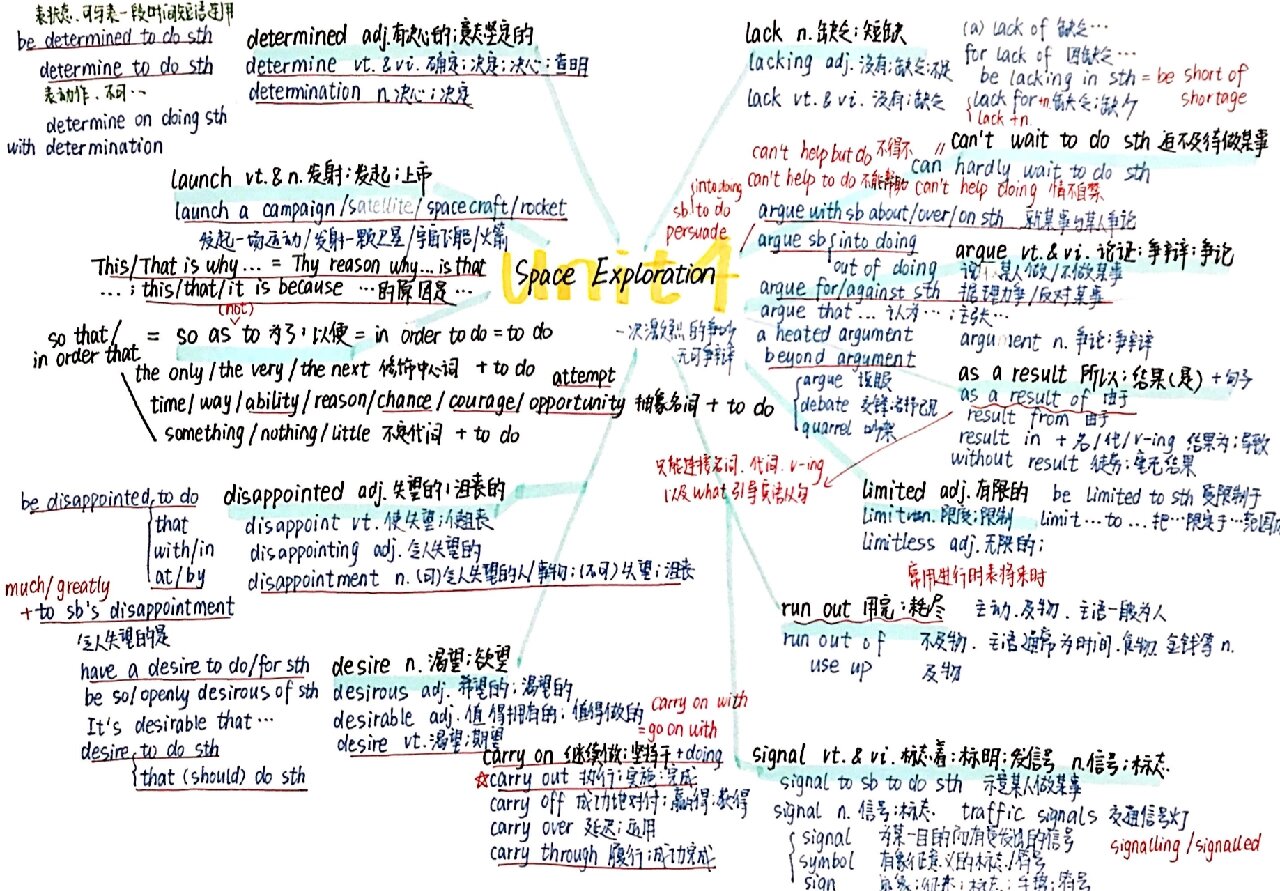 表状态、可与表一段时间短语连用
be determined to do sth
determine to do sth
表动作、不可…
determine on doing sth
with determination
determined adj.有决心的;意志坚定的
determine vt.&vi.确定;决定;决心;查明
determination n.决心;决定
launch vt.&n.发射;发起;上市
launch a campaign/satellite/spacecraft/rocket
发起一场运动/发射一颗卫星/宇宙飞船/火箭
This/That is why... = Thy reason why... is that
...; this/that/it is because …的原因是…
(not)
so that/
in order that
= so as to 为了;以便 = in order to do = to do
the only/the very/the next 修饰中心词 + to do
attempt
time/way/ability/reason/chance/courage/opportunity 抽象名词 + to do
something/nothing/little 不定代词 + to do
be disappointed to do
that
with/in
at/by
much/greatly
+to sb's disappointment
令人失望的是
disappointed adj.失望的;沮丧的
disappoint vt.使失望;使沮丧
disappointing adj.令人失望的
disappointment n.(可)令人失望的人/事物;(不可)失望;沮丧
have a desire to do/for sth
be so/openly desirous of sth
It's desirable that …
desire to do sth
that (should) do sth
desire n.渴望;欲望
desirous adj.希望的;渴望的
desirable adj.值得拥有的;值得做的
desire vt.渴望;期望
carry on with
=go on with
carry on 继续做;坚持干 +doing
☆carry out 执行;实施;完成
carry off 成功地对付;赢得;获得
carry over 延迟;适用
carry through 履行;成功完成
unit 4
Space Exploration
lack n.缺乏;短缺
lacking adj.没有;缺乏;不足
lack vt.&vi.没有;缺乏
(a) lack of 缺乏…
for lack of 因缺乏…
be lacking in sth = be short of
shortage
lack for+n.缺乏;缺少
lack +n.
can't wait to do sth 迫不及待做某事
can hardly wait to do sth
can't help but do 不得不
can't help to do 不能帮助 can't help doing 情不自禁
into doing
sb to do
persuade
argue with sb about/over/on sth 就某事与某人争论
argue sb into doing
out of doing
说服某人做/不做某事
argue vt.&vi.论证;争辩;争论
argue for/against sth 据理力争/反对某事
argue that... 认为…;主张…
一次激烈的争吵
a heated argument
argument n.争论;争辩
无可争辩
beyond argument
argue 说服
debate 交锋;各抒己见
quarrel 吵架
as a result 所以;结果(是) +句子
as a result of 由于
result from 由于
result in +名/代/v-ing 结果为;导致
without result 徒劳;毫无结果
只能连接名词、代词、v-ing
以及what引导宾语从句
limited adj.有限的
limit vt.n.限度;限制
limitless adj.无限的;
be limited to sth 受限制于
limit...to... 把…限定于…范围内
常用进行时表将来时
run out 用完;耗尽
主动、及物、主语一般为人
run out of
不及物、主语通常为时间、食物、金钱等n.
use up
及物
signal vt.&vi.标志着;标明;发信号 n.信号;标志
signal to sb to do sth 示意某人做某事
signal n.信号;标志. traffic signals 交通信号灯
signal 为某一目的而有意发出的信号
symbol 有象征意义的标志/符号
sign
signalling/signalled